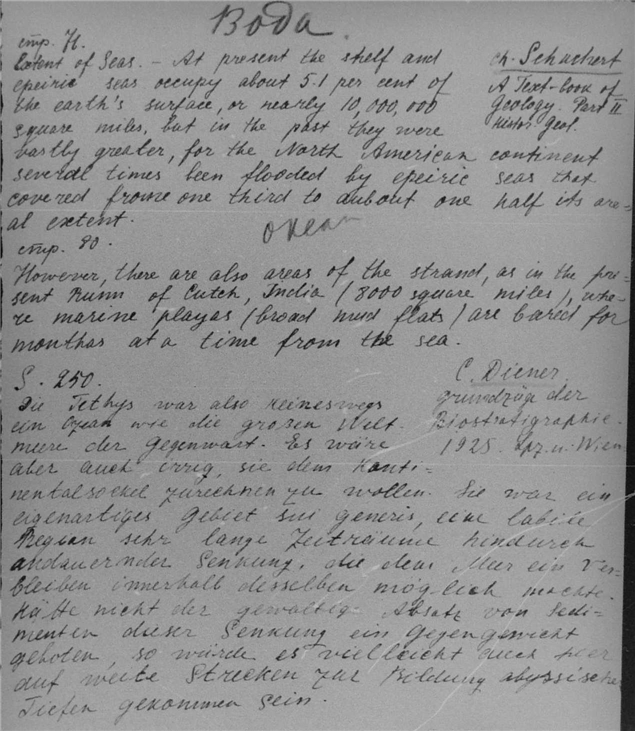 Вода
стр. 71.
Extent of Seas. – At present the shelf and
epeiric seas occupy about 5.1 per cent of
the earth's surface, or nearly 10,000,000
square miles, but in the past they were
vastly greater, for the North American continent
several times been flooded by epeiric seas that
covered frome one third to aubout one half its are-
al extent.
Ch. Schuchert
A Text-book of
Geology. Part II
Histor. Geol.
океан
стр. 90.
However, there are also areas of the strand, as in the pre-
sent Runn of Cutch, India (8000 square miles), whe-
re marine playas (broad mud flats) are bared for
monthas at a time from the sea.
S. 250.
Die Tethys war also keineswegs
ein Ozean wie die großen Welt-
mere der Gegenwart. Es wäre
aber auch irrig, sie dem Konti-
nentalsockel zurechnen zu wollen. Sie war ein
eigenartiges Gebiet sui generis, eine labile
Region sehr lange Zeiträume hindurch
andauernder Senkung, die dem Meer ein Ver-
bleiben innerhalb desselben möglich machte.
Hätte nicht der gewaltige Absatz von Sedi-
menten dieser Senkung ein Gegengewicht
geboten, so würde es vielleicht auch hier
auf weite Strecken zur Bildung abyssische
Tiefen gekommen sein.
C. Diener
Grundzüge der
Biostratigraphie.
1925. Lpz. u. Wien